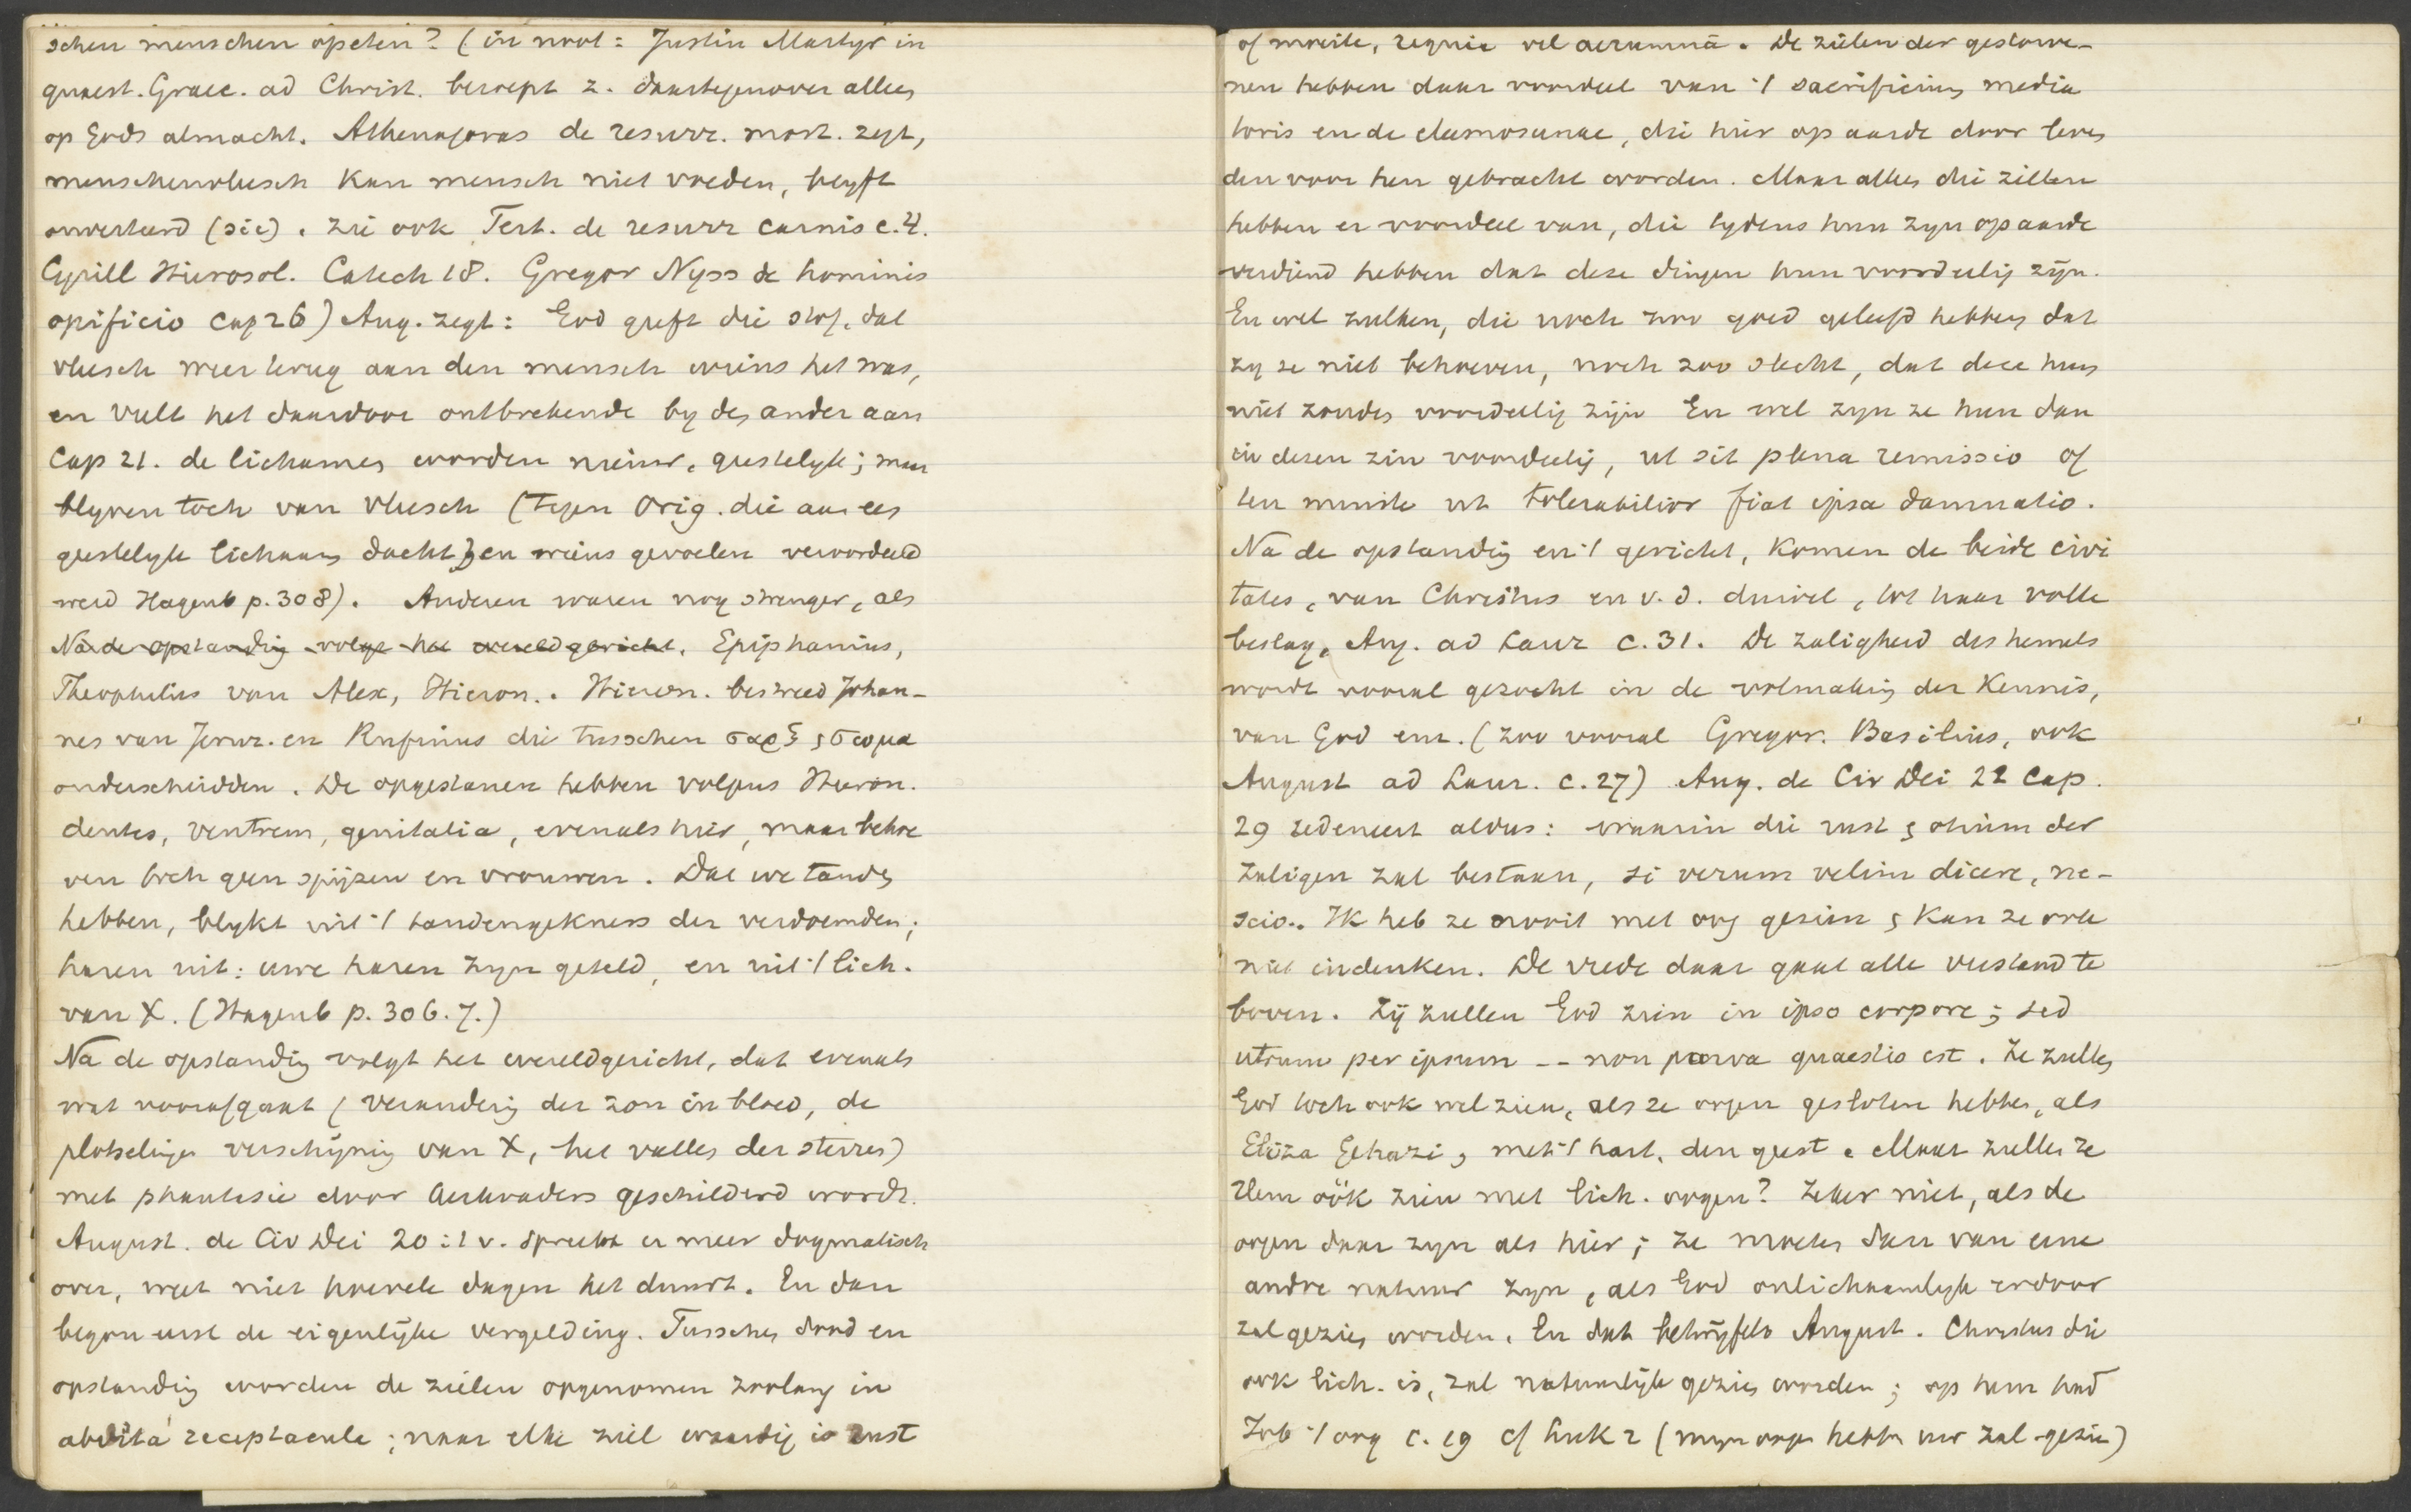 schen menschen opeten? (in noot: Justin Martyr in
quaest. Graec. ad Christ. beroept z. daartegenover alleen
op Gods almacht. Athenagoras de resurr. mort. zegt,
menschenvleesch kan mensch niet voeden, blyft
onverteerd (sic). zie ook Tert. de resurr carnis c. 4.
Cyrill Hierosol. Catech 18. Gregor Nyss de hominis
opificio cap 26) Aug. zegt: God geeft die stof, dat
vleesch weer terug aan den mensch wiens het was,
en vult het daardoor ontbrekende by den ander aan
Cap 21. de lichamen worden nieuw, geestelyk; maar
blyven toch van vleesch (tegen Orig. die aan een
geestelyk lichaam dacht) en wiens gevoelen veroordeeld
werd Hagenb p. 308). Anderen waren nog strenger, als
Na de opstanding volgt het wereldgericht. Epiphanius,
Theophilus van Alex, Hieron.. Hieron. bestreed Johan-
nes van Jeruz. en Rufinus die tusschen σαρξ ς σωμα
onderscheidden. De opgestanen hebben volgens Hieron.
dentes, ventrem, genitalia, evenals hier, maar behoe
ven toch geen spijzen en vrouwen. Dat we tanden
hebben, blykt uit 't tandengekners der verdoemden;
haren uit: uwe haren zyn geteld, en uit 't lich.
van X. (Hagenb p. 306. 7.)
Na de opstanding volgt het wereldgericht, dat evenals
wat voorafgaat (verandering der zon in bloed, de
plotselinge verschijning van X, het vallen der sterren)
met phantasie door kerkvaders geschilderd wordt.
August. de Civ Dei 20:1 v. spreekt er meer dogmatisch
over, weet niet hoevele dagen het duurt. En dan
begon eerst de eigenlijke vergelding. Tusschen dood en
opstanding worden de zielen opgenomen zoolang in
abdita receptacula; naar elke ziel waardig is rust
of moeite, requie vel aerumnā. De zielen der gestorve-
nen hebben daar voordeel van 't sacrificium media
toris en de eleemosunae, die hier op aarde door leven
den voor hen gebracht worden. Maar alleen die zielen
hebben er voordeel van, die tydens hun zyn op aarde
verdiend hebben dat deze dingen hun voordeelig zijn.
En wel zulken, die noch zoo goed geleefd hebben dat
zy ze niet behoeven, noch zoo slecht, dat deze hun
niet zouden voordeelig zijn En wel zyn ze hun dan
in dezen zin voordeelig, ut sit plena remissio of
ten minste ut tolerabilior fiat ipsa damnatio.
Na de opstanding en 't gericht, komen de beide civi
tates, van Christus en v. d. duivel, tot haar volle
beslag, Aug. ad Laur c. 31. De zaligheid des hemels
wordt vooral gezocht in de volmaking der kennis,
van God enz. (zoo vooral Gregor. Basilius, ook
August ad Laur. c. 27) Aug. de Civ Dei 22 Cap.
29 redeneert aldus: waarin die rust ς otium der
zaligen zal bestaan, si verum velim dicere, ne-
scio.. Ik heb ze nooit met oog gezien ς kan ze ook
niet indenken. De vrede daar gaat alle verstand te
boven. Zij zullen God zien in ipso corpore; sed
utrum per ipsum -- non parva quaestio est. Ze zullen
God toch ook wel zien, als ze oogen gesloten hebben, als
Eliza Gehazi, met 't hart, den geest. Maar zullen ze
Hem oök zien met lich. oogen? Zeker niet, als de
oogen daar zyn als hier; ze moeten dan van eene
andre natuur zyn, als God onlichaamlyk erdoor
zal gezien worden. En dat betwyfelt August. Christus die
ook lich. is, zal natuurlijk gezien worden; op hem had
Job 't oog c. 19 cf Luk 2 (myn oogen hebben uw zal. gezien)